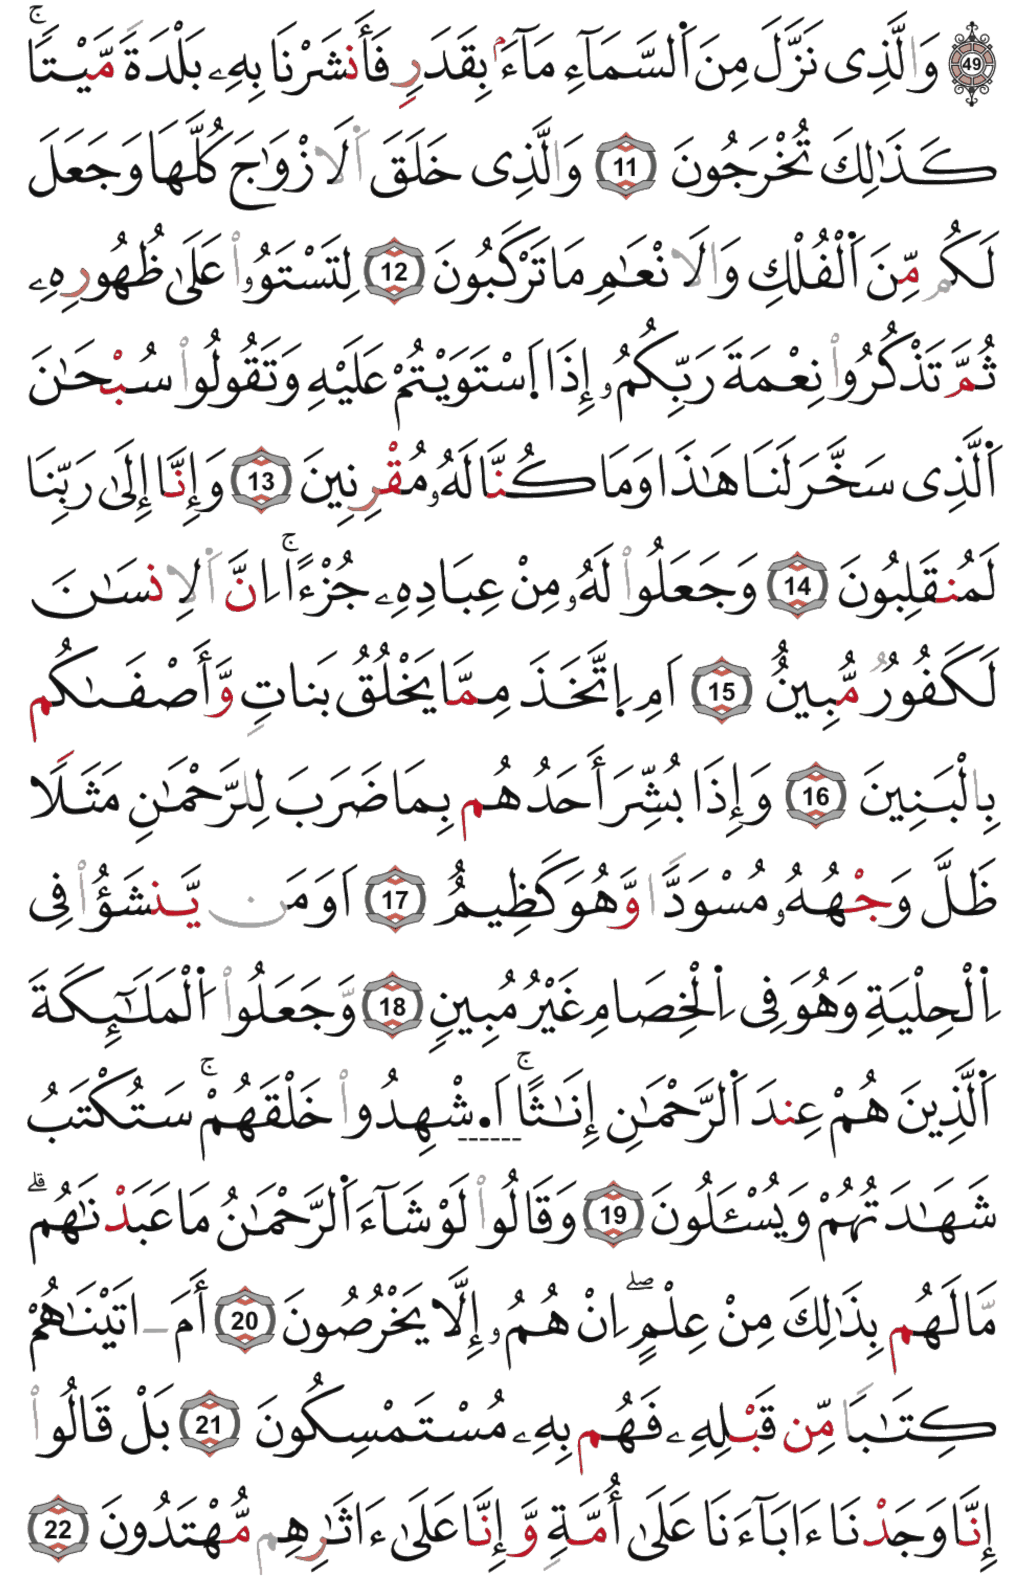 49 وَالَّذِى نَزَّلَ مِنَ اَ۬لسَّمَآءِ مَآءَۢ بِقَدَرٍ فَأَنشَرْنَا بِهِۦ بَلْدَةً مَّيْتاًۚ
كَذَٰلِكَ تُخْرَجُونَ 11 وَالَّذِى خَلَقَ اَ۬لَازْوَٰجَ كُلَّهَا وَجَعَلَ
لَكُم مِّنَ اَ۬لْفُلْكِ وَالَانْعَٰمِ مَا تَرْكَبُونَ 12 لِتَسْتَوُۥاْ عَلَىٰ ظُهُورِهِۦ
ثُمَّ تَذْكُرُواْ نِعْمَةَ رَبِّكُمُۥ إِذَا اَ۪سْتَوَيْتُمْ عَلَيْهِ وَتَقُولُواْ سُبْحَٰنَ
اَ۬لَّذِى سَخَّرَ لَنَا هَٰذَا وَمَا كُنَّا لَهُۥ مُقْرِنِينَ 13 وَإِنَّا إِلَىٰ رَبِّنَا
لَمُنقَلِبُونَ 14 وَجَعَلُواْ لَهُۥ مِنْ عِبَادِهِۦ جُزْءًاۚ اِنَّ اَ۬لِانسَٰنَ
لَكَفُورٌ مُّبِينٌ 15 اَمِ اِ۪تَّخَذَ مِمَّا يَخْلُقُ بَنَاتٍ وَّأَصْفَىٰكُم
بِالْبَنِينَ 16 وَإِذَا بُشِّرَ أَحَدُهُم بِمَا ضَرَبَ لِلرَّحْمَٰنِ مَثَلًا
ظَلَّ وَجْهُهُۥ مُسْوَدًّا وَّهُوَ كَظِيمٌ 17 اَوَمَن يَّنشَؤُاْ فِى
اِ۬لْحِلْيَةِ وَهُوَ فِى اِ۬لْخِصَامِ غَيْرُ مُبِينٍ 18 وَّجَعَلُواْ اُ۬لْمَلَٰٓئِكَةَ
اَ۬لَّذِينَ هُمْ عِندَ اَ۬لرَّحْمَٰنِ إِنَٰثًاۚ اَ.شْهِدُواْ خَلْقَهُمْۚ سَتُكْتَبُ
شَهَٰدَتُهُمْ وَيُسْـَٔلُونَ 19 وَقَالُواْ لَوْ شَآءَ اَ۬لرَّحْمَٰنُ مَا عَبَدْنَٰهُمۗ
مَّا لَهُم بِذَٰلِكَ مِنْ عِلْمٍۖ اِنْ هُمُۥ إِلَّا يَخْرُصُونَ 20 أَمَ ـ اتَيْنَٰهُمْ
كِتَٰبًا مِّن قَبْلِهِۦ فَهُم بِهِۦ مُسْتَمْسِكُونَ 21 بَلْ قَالُواْ
إِنَّا وَجَدْنَا ءَابَآءَنَا عَلَىٰ أُمَّةٍ وَّإِنَّا عَلَىٰ ءَاثَٰرِهِم مُّهْتَدُونَ 22